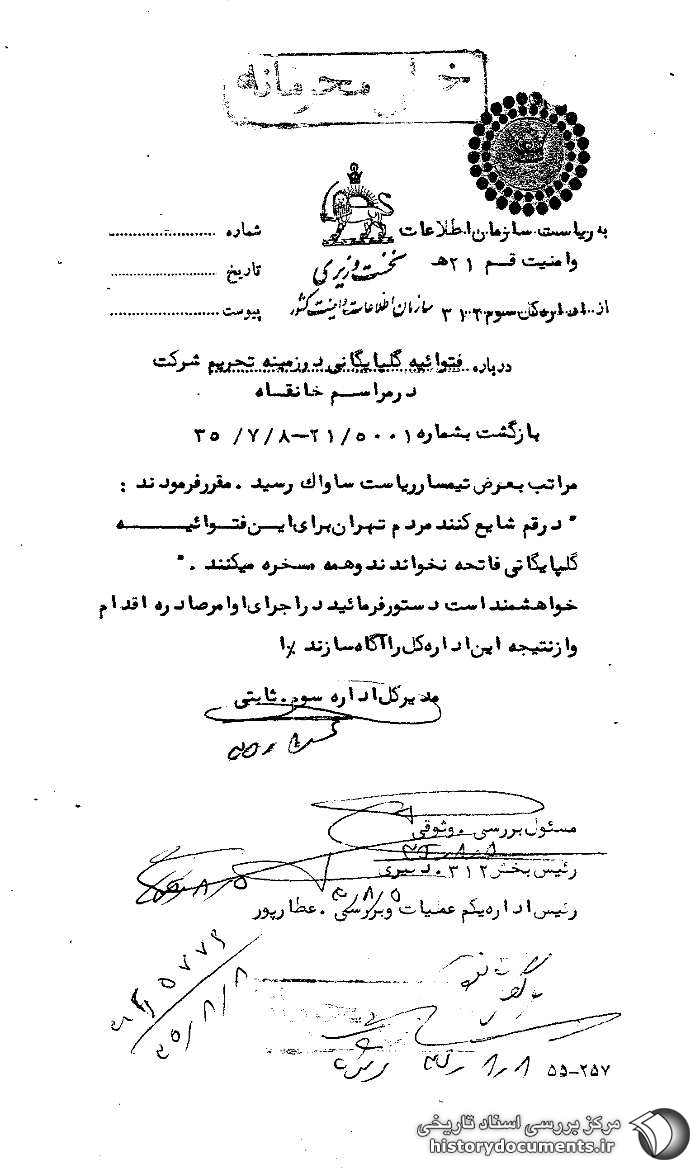 خیلی محرمانه
به ریاست سازمان اطلاعات
و امنیت قم ۲۱ هـ
از اداره کل سوم ۳۱۲
نخست وزیری
سازمان اطلاعات و امنیت کشور
شماره
تاریخ
پیوست
درباره فتوائیه گلپایگانی در زمینه تحریم شرکت
در مراسم خانقاه
بازگشت بشماره ۲۱/۵۰۰۱-۳۵/۷/۸
مراتب بعرض تیمسار ریاست ساواک رسید . مقرر فرمودند :
" در قم شایع کنند مردم تهران برای این فتوائیه
گلپایگانی فاتحه نخواندند و همه مسخره میکنند . "
خواهشمند است دستور فرمائید در اجرای اوامر صادره اقدام
و از نتیجه این اداره کل را آگاه سازند ٪ا
مدیر کل اداره سوم . ثابتی
مسئول بررسی . وثوقی
۳۵/۸/۵
رئیس بخش ۳۱۲ . دبیری
۸/۵
رئیس اداره یکم عملیات و بررسی . عطارپور
۸/۵
۵۷۷۶
۳۵/۸/۸
۳۵/۸/۸
۵۵-۲۵۷
مرکز بررسی اسناد تاریخی
historydocuments.ir